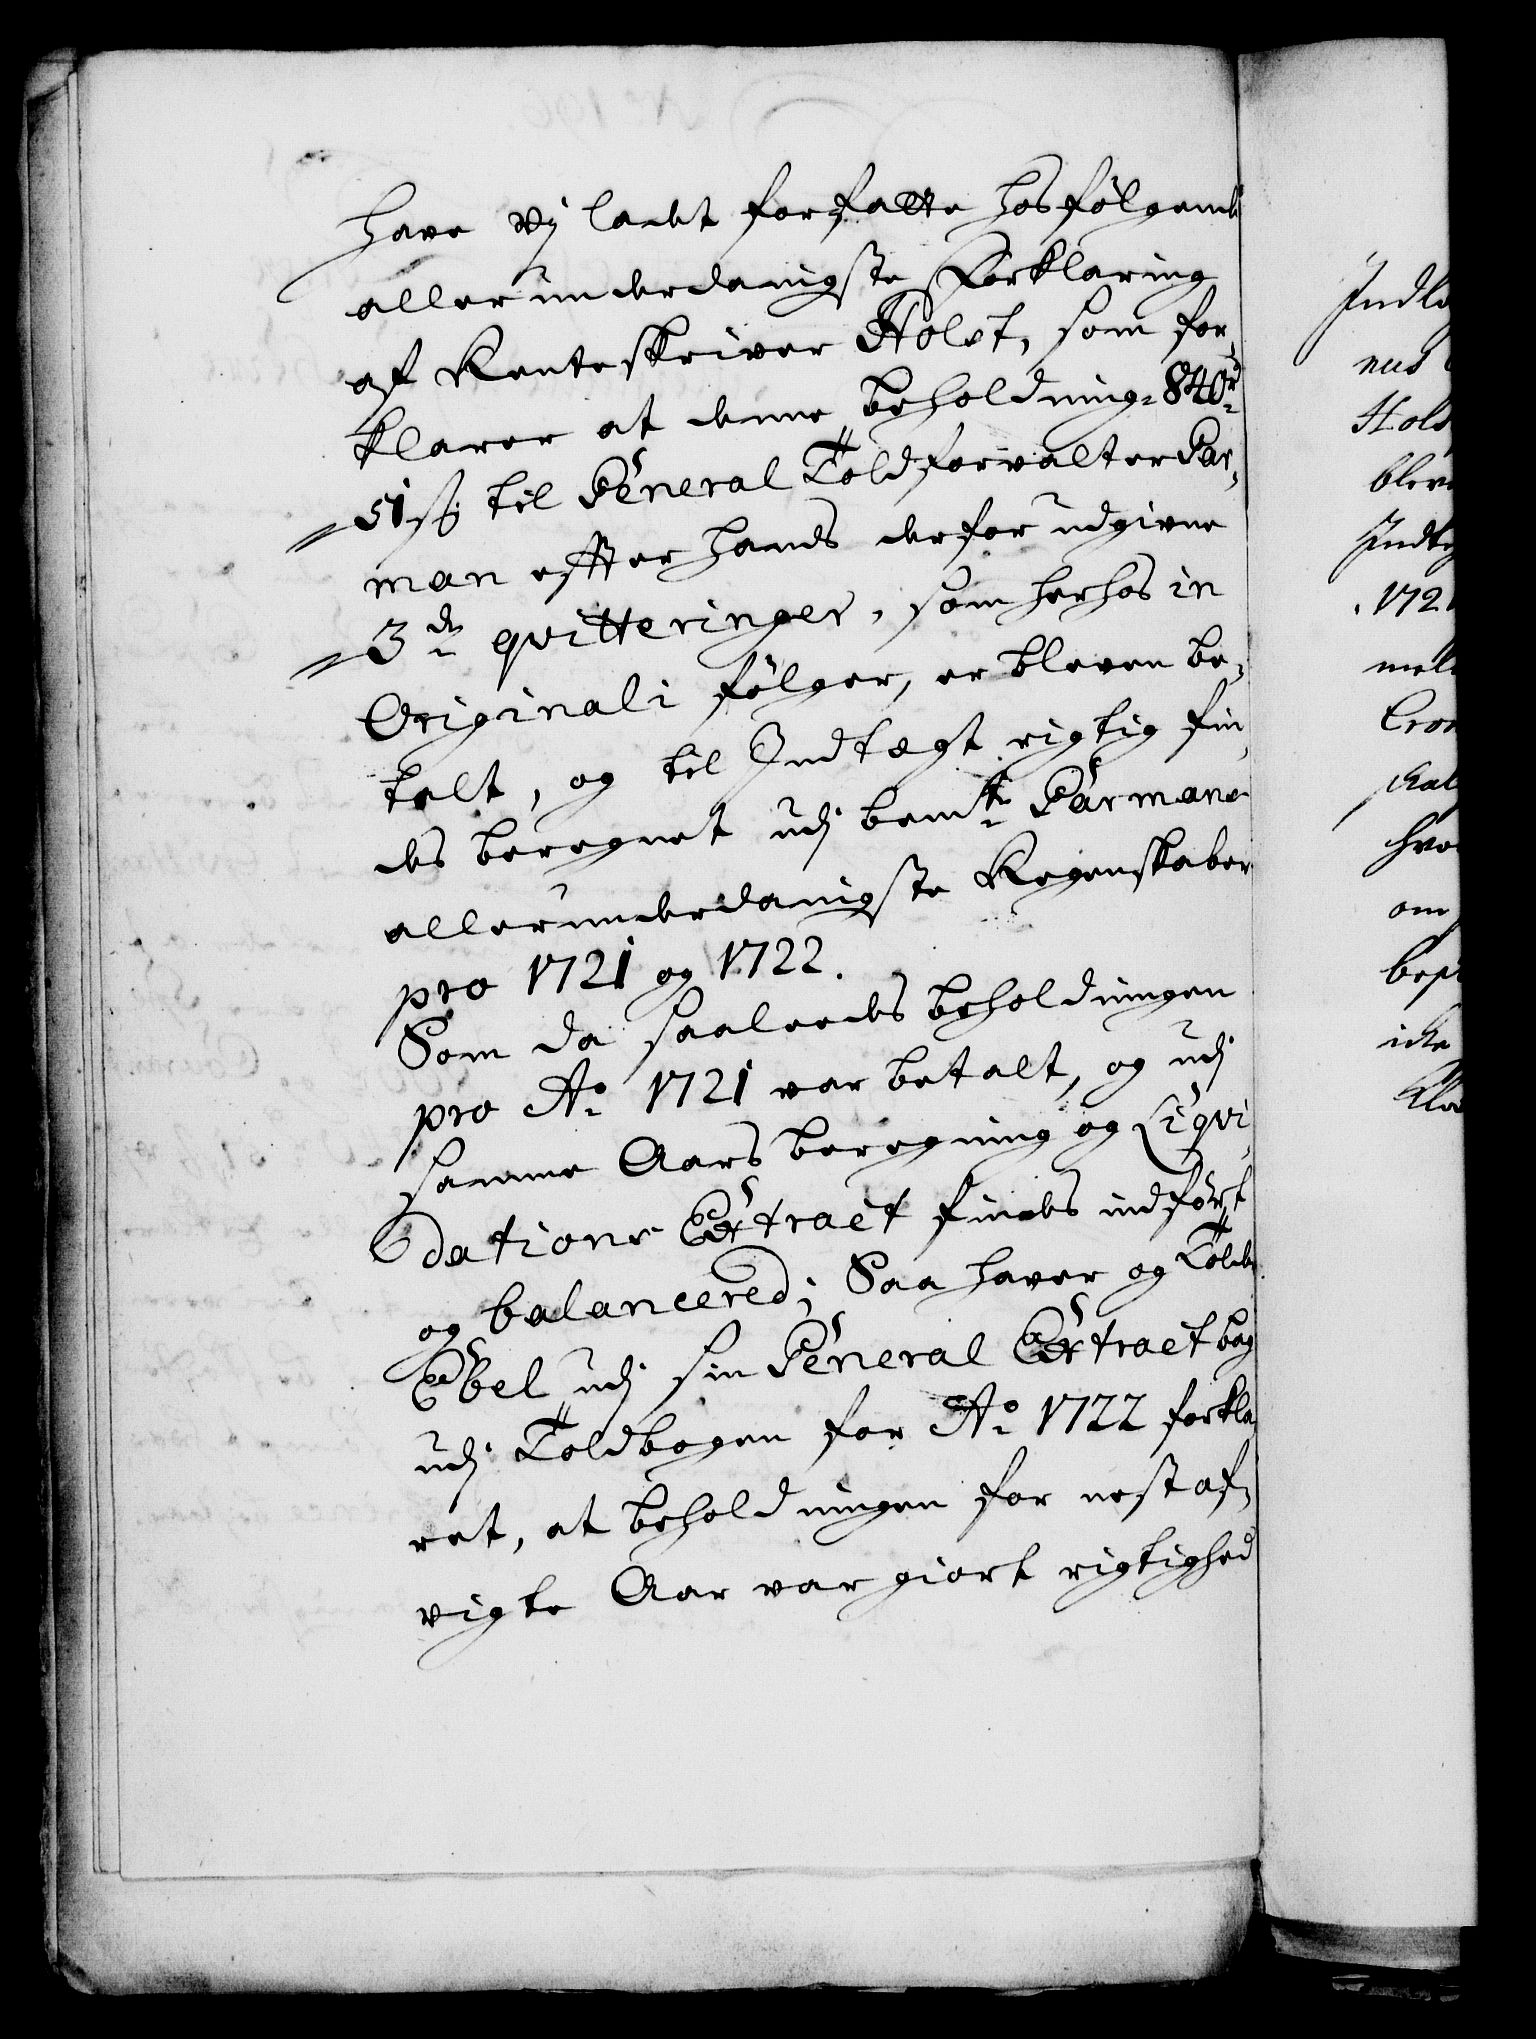 have Vj ladet forfatte hosfølgende
allerunderdanigste Forklaring
af Renteskriver Holst, som for,
klarer at denne beholdning 840 rd
51 ß til General Toldforvalter Gar,
man efter hands derfor udgivne
3de qvitteringer, som herhos in
Originali følger, er bleven be,
talt, og til Indtægt rigtig fin,
des beregnet udj bemte Garmans
allerunderdanigste Regenskaber
pro 1721 og 1722.
Som da saaleedes beholdningen
pro Ao 1721 var betalt, og udj
samme Aars beregning og Liqvi,
dations Extract findes indført
og balancered; Saa haver og Told
Ebel udj sin General Extract bog
udj Toldbogen for Ao 1722 forkla
ret, at beholdningen for nest af,
vigte Aar var giort rigtighed